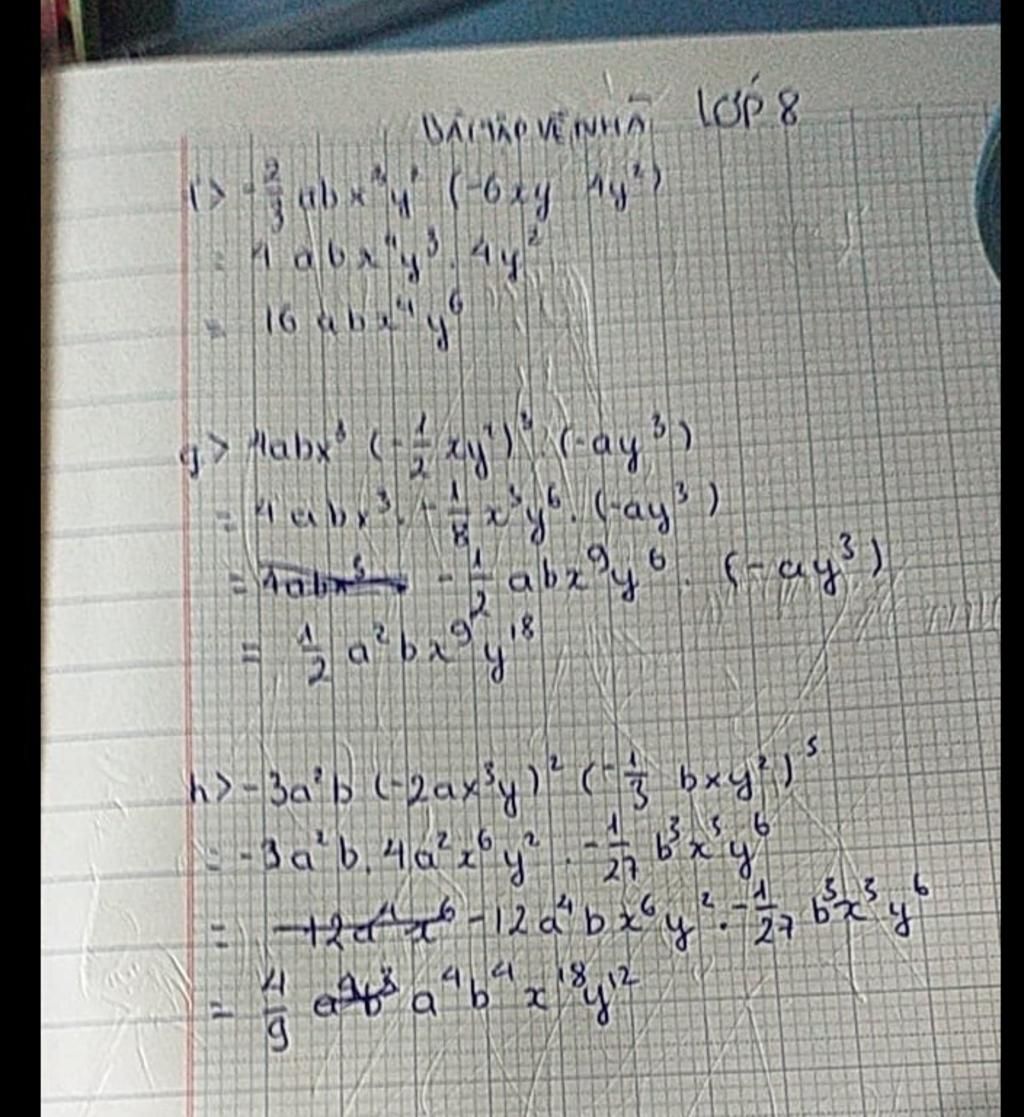 BÀI TẬP VỀ NHÀ LỚP 8
f> -2/3 abx³y² (-6xy 4y²)
= 4 abx⁴y³ . 4y²
= 16 abx⁴y⁶
g> 4abx³ (-1/2 xy²)³ . (-ay³)
= 4abx³ . -1/8 x³y⁶ . (-ay³)
= -1/2 abx⁹y⁶ . (-ay³)
= 1/2 a²bx⁹y¹⁸
h> -3a²b (-2ax³y)² (-1/3 bxy²)³
= -3a²b . 4a²x⁶y² . -1/27 b³x³y⁶
= -12a⁴bx⁶y² . -1/27 b³x³y⁶
= 4/9 a⁴b⁴x¹⁸y¹²